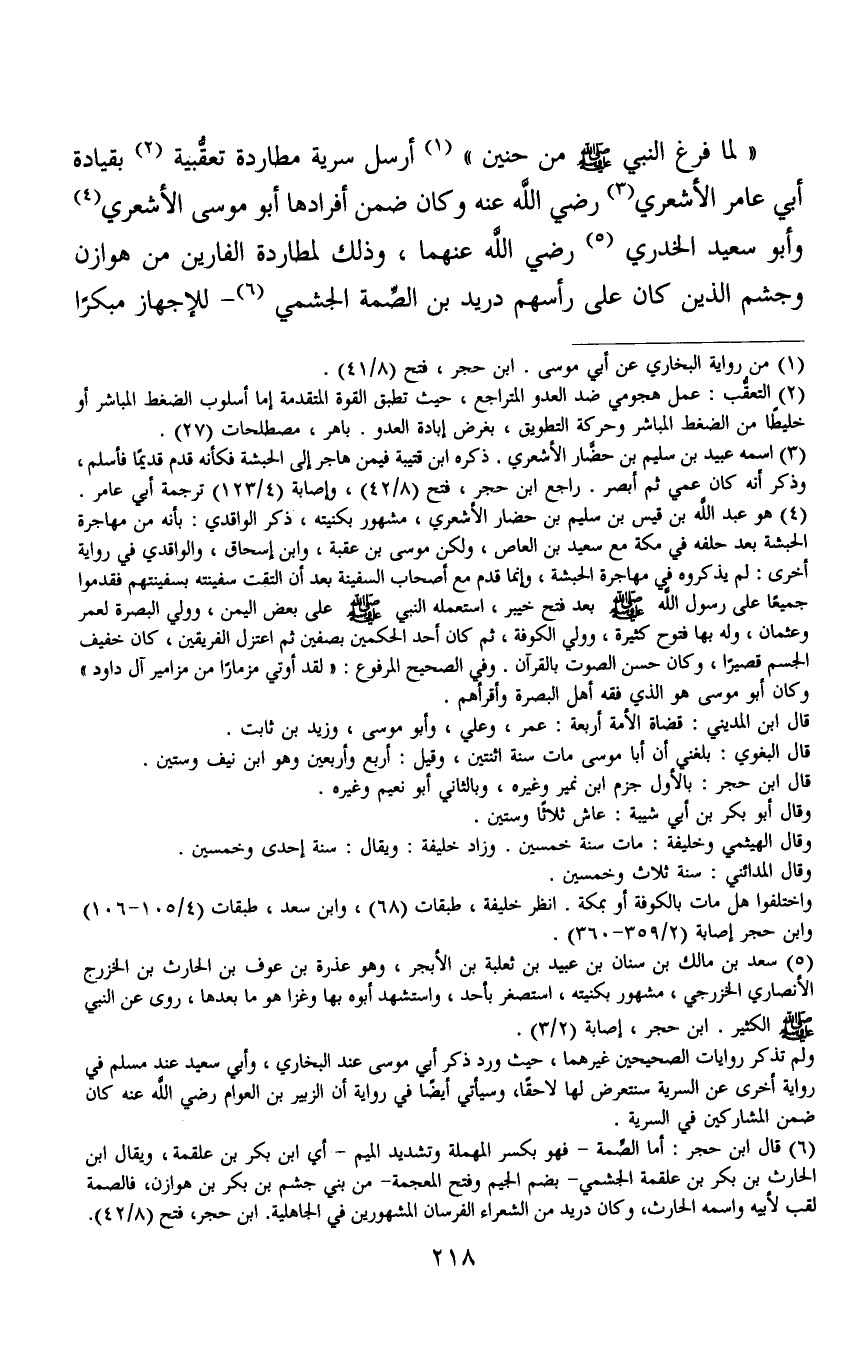 « لما فرغ النبي ﷺ من حنين » (١) أرسل سرية مطاردة تعقُّبية (٢) بقيادة
أبي عامر الأشعري(٣) رضي اللَّه عنه وكان ضمن أفرادها أبو موسى الأشعري(٤)
وأبو سعيد الخدري (٥) رضي اللَّه عنهما ، وذلك لمطاردة الفارين من هوازن
وجشم الذين كان على رأسهم دريد بن الصِّمة الجشمي (٦)– للإجهاز مبكرًا
(١) من رواية البخاري عن أبي موسى . ابن حجر ، فتح (٤١/٨) .
(٢) التعقُّب : عمل هجومي ضد العدو المتراجع ، حيث تطبق القوة المتقدمة إما أسلوب الضغط المباشر أو
خليطًا من الضغط المباشر وحركة التطويق ، بغرض إبادة العدو . باهر ، مصطلحات (٢٧) .
(٣) اسمه عبيد بن سليم بن حضَّار الأشعري . ذكره ابن قتيبة فيمن هاجر إلى الحبشة فكأنه قدم قديمًا فأسلم ،
وذكر أنه كان عمي ثم أبصر . راجع ابن حجر ، فتح (٤٢/٨) ، وإصابة (١٢٣/٤) ترجمة أبي عامر .
(٤) هو عبد اللَّه بن قيس بن سليم بن حضار الأشعري ، مشهور بكنيته ، ذكر الواقدي : بأنه من مهاجرة
الحبشة بعد حلفه في مكة مع سعيد بن العاص ، ولكن موسى بن عقبة ، وابن إسحاق ، والواقدي في رواية
أخرى : لم يذكروه في مهاجرة الحبشة ، وإنما قدم مع أصحاب السفينة بعد أن التقت سفينته بسفينتهم فقدموا
جميعًا على رسول اللَّه ﷺ بعد فتح خيبر ، استعمله النبي ﷺ على بعض اليمن ، وولي البصرة لعمر
وعثمان ، وله بها فتوح كثيرة ، وولي الكوفة ، ثم كان أحد الحكمين بصفين ثم اعتزل الفريقين ، كان خفيف
الجسم قصيرًا ، وكان حسن الصوت بالقرآن . وفي الصحيح المرفوع : « لقد أوتي مزمارًا من مزامير آل داود »
وكان أبو موسى هو الذي فقه أهل البصرة وأقرأهم .
قال ابن المديني : قضاة الأمة أربعة : عمر ، وعلي ، وأبو موسى ، وزيد بن ثابت .
قال البغوي : بلغني أن أبا موسى مات سنة اثنتين ، وقيل : أربع وأربعين وهو ابن نيف وستين .
قال ابن حجر : بالأول جزم ابن نمير وغيره ، وبالثاني أبو نعيم وغيره .
وقال أبو بكر بن أبي شيبة : عاش ثلاثًا وستين .
وقال الهيثمي وخليفة : مات سنة خمسين . وزاد خليفة : ويقال : سنة إحدى وخمسين .
وقال المدائني : سنة ثلاث وخمسين .
واختلفوا هل مات بالكوفة أو بمكة . انظر خليفة ، طبقات (٦٨) ، وابن سعد ، طبقات (١٠٥/٤–١٠٦)
وابن حجر إصابة (٣٥٩/٢–٣٦٠) .
(٥) سعد بن مالك بن سنان بن عبيد بن ثعلبة بن الأبجر ، وهو عذرة بن عوف بن الحارث بن الخزرج
الأنصاري الخزرجي ، مشهور بكنيته ، استصغر بأحد ، واستشهد أبوه بها وغزا هو ما بعدها ، روى عن النبي
ﷺ الكثير . ابن حجر ، إصابة (٣/٢) .
ولم تذكر روايات الصحيحين غيرهما ، حيث ورد ذكر أبي موسى عند البخاري ، وأبي سعيد عند مسلم في
رواية أخرى عن السرية سنتعرض لها لاحقًا، وسيأتي أيضًا في رواية أن الزبير بن العوام رضي اللَّه عنه كان
ضمن المشاركين في السرية .
(٦) قال ابن حجر : أما الصِّمة – فهو بكسر المهملة وتشديد الميم – أي ابن بكر بن علقمة ، ويقال ابن
الحارث بن بكر بن علقمة الجشمي– بضم الجيم وفتح المعجمة– من بني جشم بن بكر بن هوازن، فالصمة
لقب لأبيه واسمه الحارث، وكان دريد من الشعراء الفرسان المشهورين في الجاهلية. ابن حجر، فتح (٤٢/٨).
٢١٨